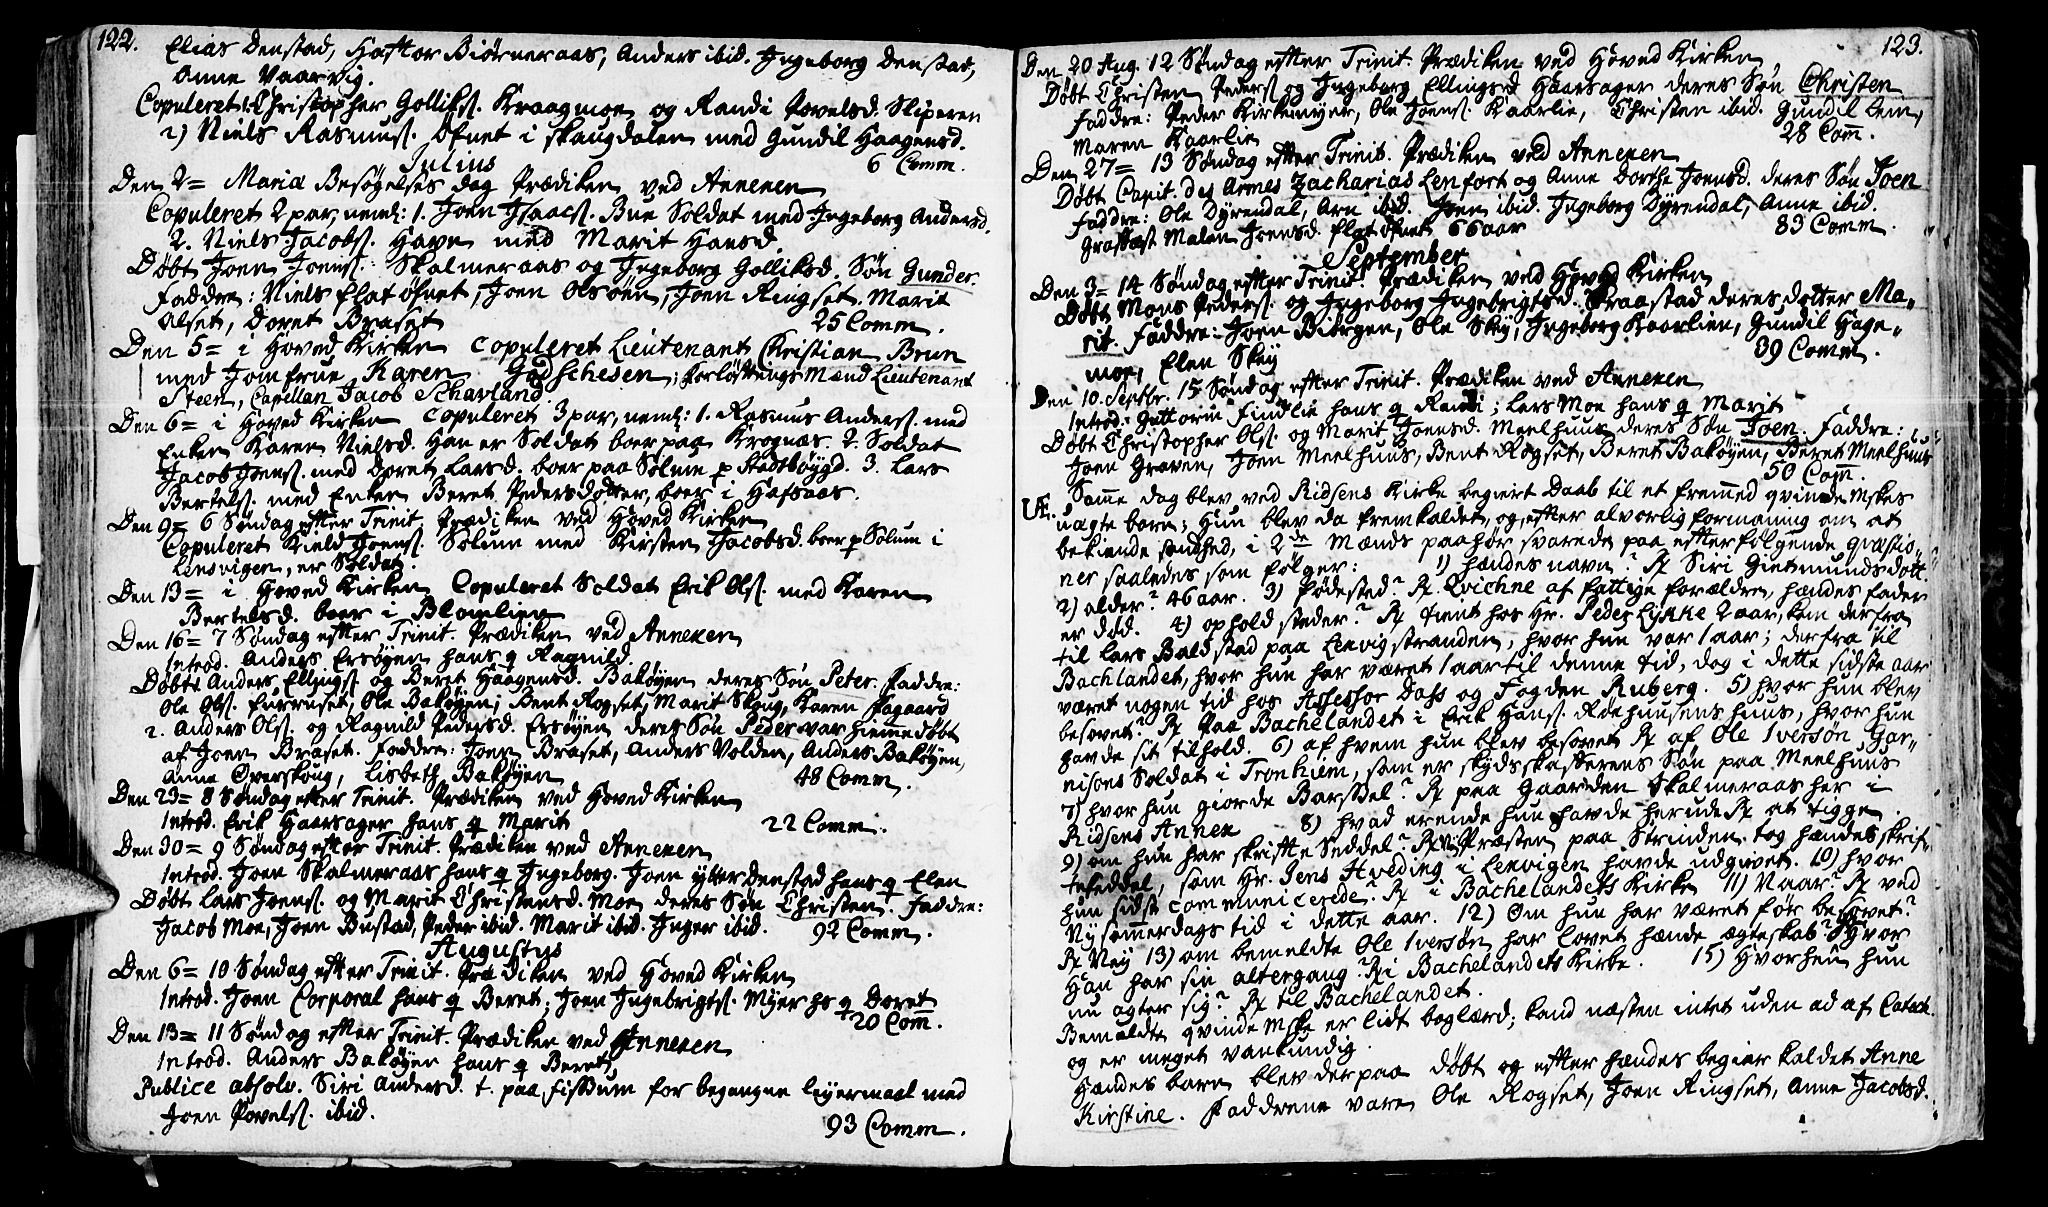 122.
Elias Denstad, Haftor Biørneraas, Anders ibid. Ingeborg Denstad,
Anne Vaarvig.
Copuleret 1. Christopher Golliks. Kraagmoe og Randi Povelsd. Sliperen
2) Niels Rasmus. Øfnet i Skaugdalen med Gundil Haagensd.
6 Comm.
Julius
Den 2= Mariæ Besøgelses dag Prædiken ved Annexen
Copuleret 2 par, neml: 1. Joen Isaacs. Bue Soldat med Ingeborg Andersd.
2. Niels Jacobs. Havn med Marit Hansd.
Døbt Joen Joens. Skalmeraas og Ingeborg Golliksd. Søn Gunder.
Faddre: Niels flatøfnet, Joen Olsøen, Joen Ringset. Marit
Alset, Doret Braset 25 Comm.
Den 5= i Hoved Kirken Copuleret Lieutenant Christian Brun
med Jomfrue Karen Godtschesen; forløftnings Mænd Lieutenant
Steen, Capellan Jacob Scharland.
Den 6= i Hoved Kirken Copuleret 3 par, neml: 1. Rasmus Anders. med
Enken Karen Nielsd. Han er Soldat boer paa Krognæs. 2. Soldat
Jacob Joens. med Doret Larsd. boer paa Solum p Stadsbøygd. 3. Lars
Bertels. med Enken Beret Pedersdotter, boer i Hafsaas.
Den 9= 6 Søndag efter Trinit. Prædiken ved Hoved Kirken
Copuleret Kield Joens. Solum med Kirsten Jacobsd. boer p Solum i
Lensvigen, er Soldat.
Den 13= i Hoved Kirken Copuleret Soldat Erik Ols. med Karen
Bertelsd. boer i Blomlien
Den 16= 7 Søndag efter Trinit. Prædiken ved Annexen
Introd. Anders Ersøyen hans q Ragnild.
Døbt Anders Ellings. og Beret Haagensd. Bakøyen deres Søn Peter. Faddre:
Ole Ols. Furruset, Ole Bakøyen, Bent Rogset, Marit Skoug, Karen Fagaard
2. Anders Ols. og Ragnild Pedersd. Ersøyen deres Søn Peder var hiemedøbt
af Joen Braset. Faddre: Joen Braset, Anders Volden, Anders Bakøyen,
Anne Overskoug, Lisbeth Bakøyen 48 Comm.
Den 23= 8 Søndag efter Trinit. Prædiken ved Hoved Kirken
Introd. Erik Haarsager hans q Marit 22 Comm.
Den 30= 9 Søndag efter Trinit. Prædiken ved Annexen
Introd. Joen Skalmeraas hans q Ingeborg. Joen ytter Denstad hans q Elen
Døbt Lars Joens. og Marit Christensd. Moe deres Søn Christen. Faddre:
Jacob Moe, Joen Bustad, Peder ibid. Marit ibid. Inger ibid. 92 Comm.
Augustus
Den 6= 10 Søndag efter Trinit. Prædiken ved Hoved Kirken
Introd. Joen Corporal hans q Beret; Joen Ingebrigts. Myer hs q Doret
20 Com.
Den 13= 11 Søndag efter Trinit. Prædiken ved Annexen
Introd. Anders Bakøyen hans q Beret
Publice absolv. Siri Andersd. t. paa Fissum for begangne leyermaal med
Joen Povels. ibid.
93 Comm.
123.
Den 20 Aug. 12 Søndag efter Trinit. Prædiken ved Hoved Kirken,
Døbt Christen Peders. og Ingeborg Ellingsd Haarsager deres Søn Christen
Faddre: Peder Kirkemyer, Ole Joens. Kaarlie, Christen ibid. Gundil Lem,
Maren Kaarlie 28 Com.
Den 27= 13 Søndag efter Trinit. Prædiken ved Annexen
Døbt Capit. des Armes Zacharias Lenfort og Anne Dorthe Joensd. deres Søn Joen
Faddre: Ole Dyrendal, Arn ibid. Joen ibid. Ingeborg Dyrendal, Anne ibid.
Grafæst Malen Joensd. flatøfnet 66 aar 83 Comm.
September
Den 3= 14 Søndag efter Trinit. Prædiken ved Hoved Kirken
Døbt Mons Peders. og Ingeborg Ingebrigtsd. Praastad deres dotter Ma-
rit. Faddre: Joen Biørgen, Ole Skey, Ingeborg Kaarlien, Gundil Hage-
moe, Elen Skey 39 Comm.
Den 10. Septbr. 15 Søndag efter Trinit. Prædiken ved Annexen
Introd. Guttorm Findlie hans q Randi; Lars Moe hans q Marit
Døbt Christopher Ols. og Marit Joensd. Meelhuus deres Søn Joen. Faddre:
Joen Graven, Joen Meelhuus, Bent Rogset, Beret Bakøyen, Beret Meelhuus
50 Com.
Samme dag blev ved Ridsens Kirke begiert Daab til et fremmed qvinde Mskes
uægte barn; Hun blev da fremkaldet, og efter alvorlig formaning om at
bekiende sandhed, i 2de Mænds paahør svarede paa efterfølgende qvæstio-
ner saaledes som følger: 1) hændes navn? R Siri Gietmundsdott.
2) alder? 46 aar. 3) fødested? R. Qvichne af fattige forældre, hændes fader
er død. 4) opholdsteder? R tient hos Hr. Peder Lykke 2 aar, kom derfra
til Lars Baldstad paa Lenvigstranden, hvor hun var 1 aar; derfra til
Bachlandet, hvor hun har været 1 aar til denne tid, dog i dette sidste aar
været nogen tid hos Assessor Dass og Fogden Ruberg. 5) hvor hun blev
besovet? R paa Bachelandet i Erik Hans. Roehuusens huus, hvor hun
havde sit tilhold. 6) af hvem hun blev besovet R af Ole Iversøn Gar-
nisons Soldat i Tronhiem, som er skydsskafferens Søn paa Meelhuus
7) hvor hun giorde Barssel? R paa Gaarden Skalmeraas her i
Ridsens Annex 8) hvad erende hun havde herude R at tigge
9) om hun har skrifte Seddel? R Præsten paa Strinden tog hændes skrif-
teseddel, som Hr. Jens Hveding i Lenvigen havde udgivet. 10) hvor
hun sidst communicerede? R i Bachelandets Kirke 11) Naar? R ved
Mysommerdags tid i dette aar. 12) Om hun har været før besovet?
R Ney 13) om bemeldte Ole Iversøn har lovet hænde ægteskab? Hvor
Han har sin altergang? R i Bachelandets Kirke. 15) Hvorhen hun
nu agter sig? R til Bachelandet.
Bemældte qvinde Mske er lidt boglærd; kand næsten intet uden ad af Catech.
og er meget vankundig.
Hændes barn blev derpaa døbt og efter hændes begiær kaldet Anne
Kirstine. Faddrene vare Ole Rogset, Joen Ringset, Anne Jacobsd.